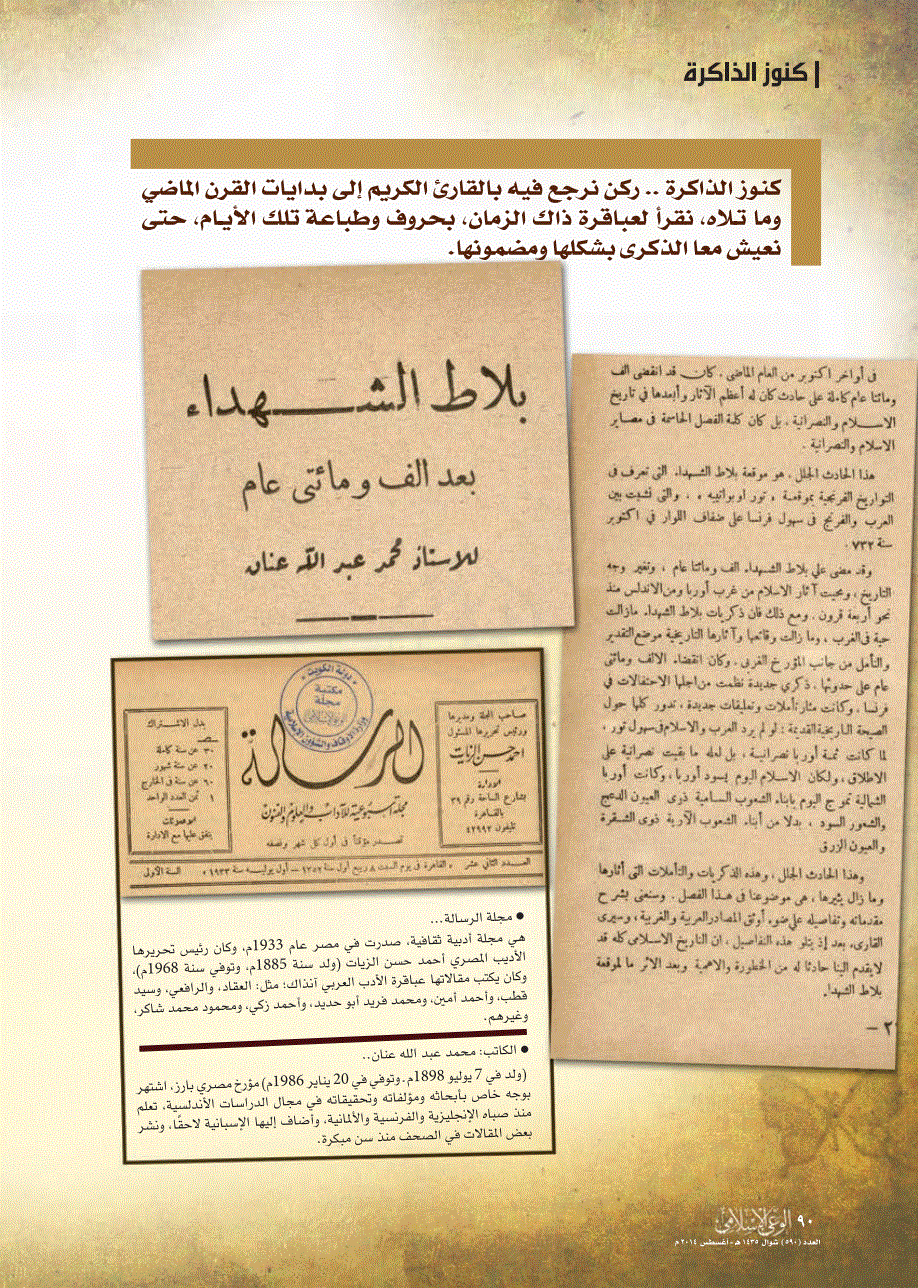 كنوز الذاكرة
كنوز الذاكرة .. ركن نرجع فيه بالقارئ الكريم إلى بدايات القرن الماضي
وما تلاه، نقرأ لعباقرة ذاك الزمان، بحروف وطباعة تلك الأيام، حتى
نعيش معا الذكرى بشكلها ومضمونها.
بلاط الشهداء
بعد الف ومائتى عام
للاستاذ محمد عبد الله عنان
فى أواخر اكتوبر من العام الماضى، كان قد انقضى الف
ومائتا عام كاملة على حادث كان له أعظم الآثار وأبعدها في تاريخ
الاسلام والنصرانية، بل كان كلمة الفصل الحاسمة فى مصاير
الاسلام والنصرانية.
هذا الحادث الجلل، هو موقعة بلاط الشهداء التى تعرف فى
التواريخ الفرنجية بموقعة «تور اوبواتييه»، والتى نشبت بين
العرب والفرنج فى سهول فرنسا على ضفاف اللوار فى اكتوبر
سنة ٧٣٢.
وقد مضى على بلاط الشهداء الف ومائتا عام، وتغير وجه
التاريخ، ومحيت آثار الاسلام من غرب أوربا ومن الاندلس منذ
نحو أربعة قرون. ومع ذلك فان ذكريات بلاط الشهداء مازالت
حية فى الغرب، وما زالت وقائعها وآثارها التاريخية موضع التقدير
والتأمل من جانب المؤرخ الغربى. وكان انقضاء الالف ومائتى
عام على حدوثها، ذكرى جديدة نظمت من اجلها الاحتفالات في
فرنسا، وكانت مثار تأملات وتعليقات جديدة، تدور كلها حول
الصيحة التاريخية القديمة: لو لم يرد العرب والاسلام فى سهول تور،
لما كانت ثمة أوربا نصرانية، بل لعله ما بقيت نصرانية على
الاطلاق، ولكان الاسلام اليوم يسود أوربا، وكانت أوربا
الشمالية تموج اليوم بابناء الشعوب السامية ذوى العيون الدعج
والشعور السود، بدلا من أبناء الشعوب الآرية ذوى الشقرة
والعيون الزرق
وهذا الحادث الجلل، وهذه الذكريات والتأملات التى أثارها
وما زال يثيرها، هى موضوعنا فى هذا الفصل. وسنعنى بشرح
مقدماته وتفاصيله على ضوء أوثق المصادر العربية والغربية، وسيرى
القارىء بعد إذ يتلو هذه التفاصيل، ان التاريخ الاسلامى كله قد
لا يقدم الينا حادثا له من الخطورة والاهمية وبعد الاثر ما لموقعة
بلاط الشهداء.
٢ —
دولة الكويت
مكتبة
مجلة
وزارة الأوقاف والشؤون الإسلامية
صاحب المجلة ومديرها
ورئيس تحريرها المسئول
احمد حسن الزيات
الادارة
بشارع الساحة رقم ٣٩
بالقاهرة
تليفون ٤٢٩٩٢
الرسالة
مجلة أسبوعية للآداب والعلوم والفنون
تصدر مؤقتاً فى أول كل شهر ونصفه
بدل الاشتراك
٣٠ عن سنة كاملة
٢٠ عن ستة شهور
٦٠ عن سنة فى الخارج
١ ثمن العدد الواحد
الاعلانات
يتفق عليها مع الادارة
العدد الثانى عشر
«القاهرة فى يوم السبت ٨ ربيع أول سنة ١٣٥٢ — أول يوليه سنة ١٩٣٣»
السنة الأولى
● مجلة الرسالة...
هي مجلة أدبية ثقافية، صدرت في مصر عام 1933م، وكان رئيس تحريرها
الأديب المصري أحمد حسن الزيات (ولد سنة 1885م، وتوفي سنة 1968م)،
وكان يكتب مقالاتها عباقرة الأدب العربي آنذاك؛ مثل: العقاد، والرافعي، وسيد
قطب، وأحمد أمين، ومحمد فريد أبو حديد، وأحمد زكي، ومحمود محمد شاكر،
وغيرهم.
● الكاتب: محمد عبد الله عنان..
(ولد في 7 يوليو 1898م. وتوفي في 20 يناير 1986م) مؤرخ مصري بارز، اشتهر
بوجه خاص بأبحاثه ومؤلفاته وتحقيقاته في مجال الدراسات الأندلسية، تعلم
منذ صباه الإنجليزية والفرنسية والألمانية، وأضاف إليها الإسبانية لاحقًا، ونشر
بعض المقالات في الصحف منذ سن مبكرة.
٩٠ الوعي الإسلامي
العدد (٥٩٠) شوال ١٤٣٥ هـ - أغسطس ٢٠١٤ م